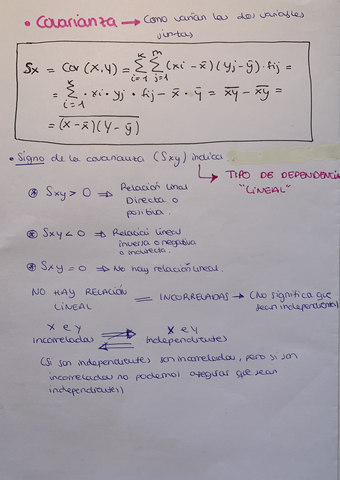 • Covarianza → Como varían las dos variables
juntas
Sx = Cov (x,y) = Σ i=1 k Σ j=1 m (xi - x̄)(yj - ȳ) · fij =
= Σ i=1 k · xi · yj · fij - x̄ · ȳ = x̅y̅ - x̅y̅ =
= (x - x̄)(y - ȳ)
• Signo de la covarianza (Sxy) indica
↳ TIPO DE DEPENDENCIA
"LINEAL"
⊛ Sxy > 0 ⇒ Relación lineal
Directa o
positiva.
⊛ Sxy < 0 ⇒ Relación lineal
inversa o negativa
o indirecta.
⊛ Sxy = 0 ⇒ No hay relación lineal.
NO HAY RELACIÓN
LINEAL = INCORRELADAS → (No significa que
sean independientes)
x e y x e y
Incorreladas ⇄ Independientes
(Si son independientes son incorreladas, pero si son
incorreladas no podemos asegurar que sean
independientes)